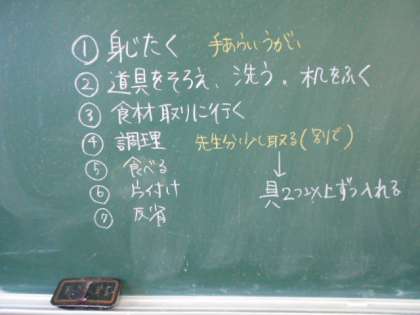 ① 身じたく 手あらいうがい
② 道具をそろえ、洗う。机をふく
③ 食材取りに行く
④ 調理 先生分少し取る(別で)
↓
具2つ以上ずつ入れる
⑤ 食べる
⑥ 片付け
⑦ 反省